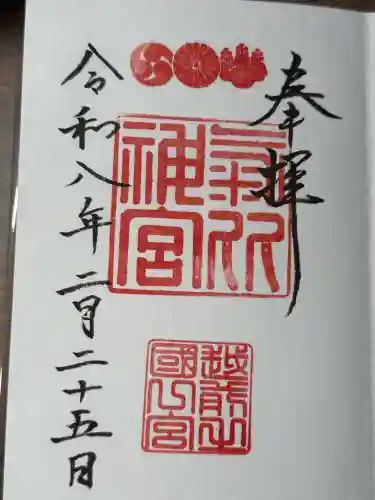 奉拝
氣比
神宮
越前
國 宮
令和八年二月二十五日